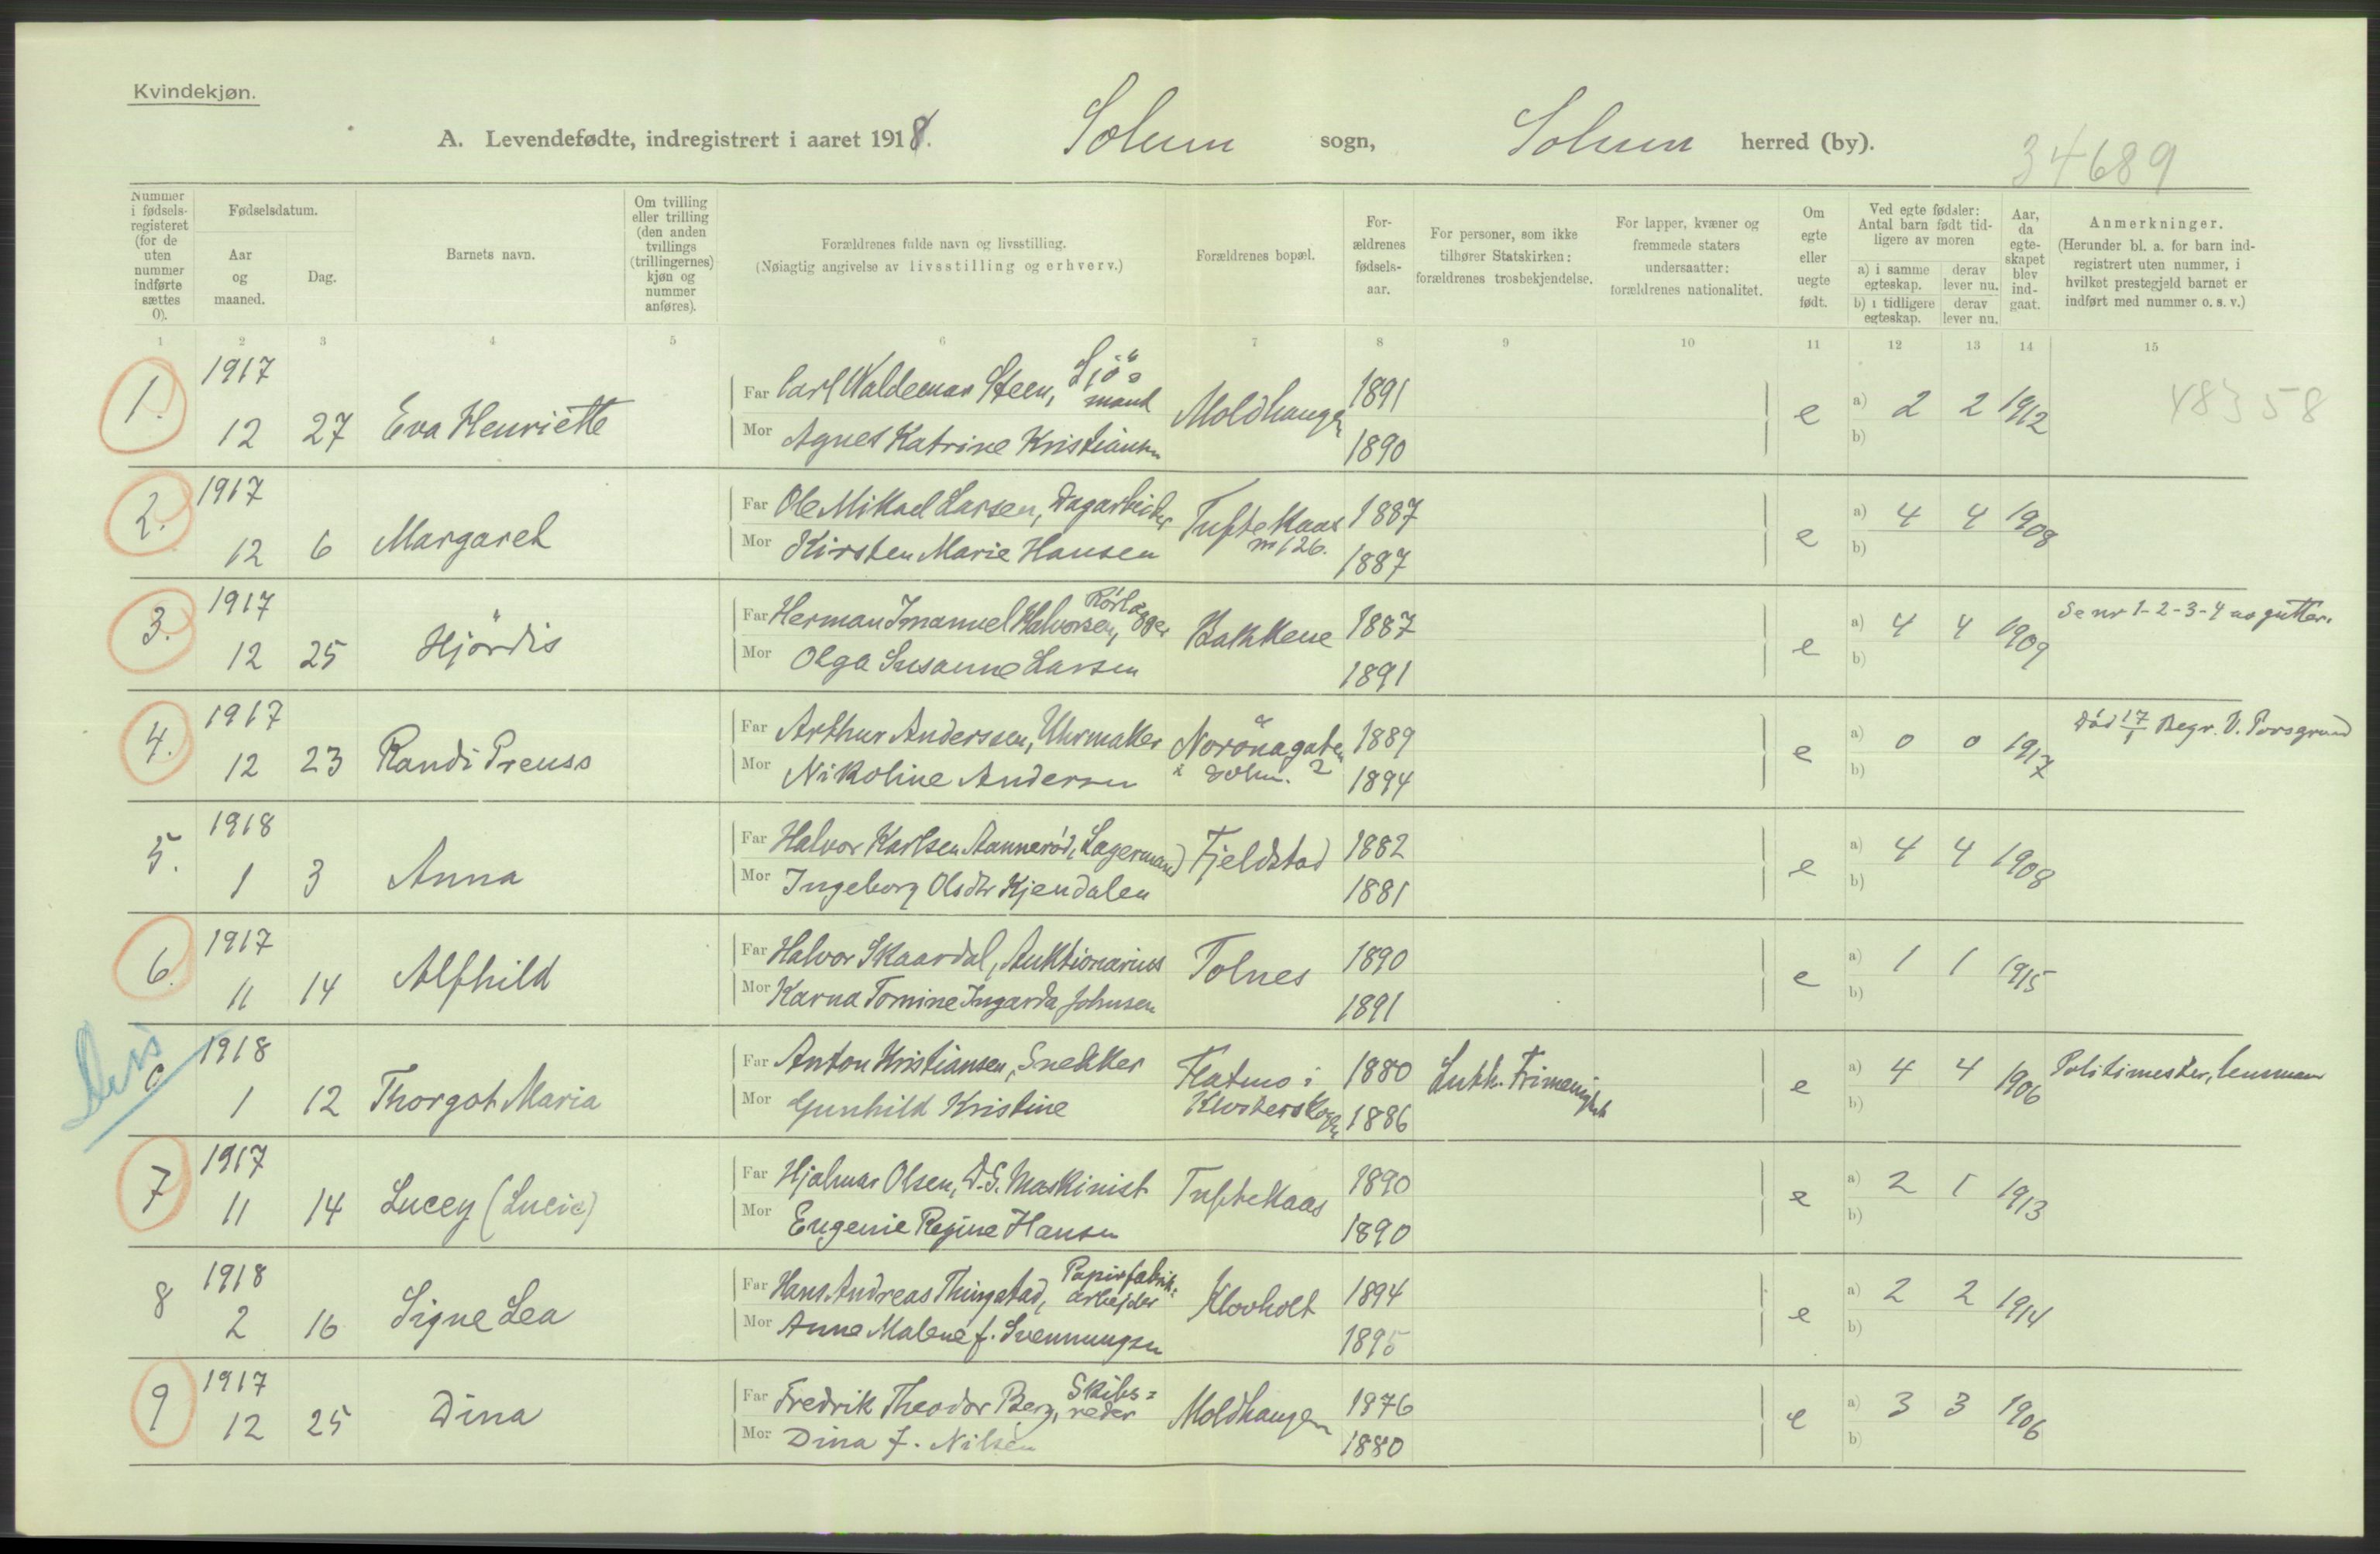 Kvindekjøn.
A. Levendefødte, indregistrert i aaret 1918. Solum sogn, Solum herred (by).
34689
Nummer i fødsels-registeret (for de uten nummer indførte sættes 0).
Fødselsdatum.
Aar og maaned.
Dag.
Barnets navn.
Om tvilling eller trilling (den anden tvillings (trillingernes) kjøn og nummer anføres).
Forældrenes fulde navn og livsstilling.
(Nøiagtig angivelse av livsstilling og erhverv.)
Forældrenes bopæl.
For-ældrenes fødsels-aar.
For personer, som ikke tilhører Statskirken: forældrenes trosbekjendelse.
For lapper, kvæner og fremmede staters undersaatter: forældrenes nationalitet.
Om egte eller uegte født.
Ved egte fødsler: Antal barn født tid-ligere av moren
a) i samme egteskap.
derav lever nu.
b) i tidligere egteskap.
derav lever nu.
Aar, da egte-skapet blev ind-gaat.
Anmerkninger.
(Herunder bl. a. for barn ind-registrert uten nummer, i hvilket prestegjeld barnet er indført med nummer o. s. v.)
1 2 3 4 5 6 7 8 9 10 11 12 13 14 15
1. 1917 12 27 Eva Henriette
Far Carl Waldemar Steen, Sjö=mand Moldhaugen 1891
Mor Agnes Katrine Kristiansen 1890
e a) 2 2 1912 48358
b)
2. 1917 12 6 Margaret
Far Ole Mikael Larsen, Dagarbeider Tuftekaas nr 126. 1887
Mor Kirsten Marie Hansen 1887
e a) 4 4 1908
b)
3. 1917 12 25 Hjördis
Far Herman Imanuel Halvorsen, Rörlægger Bakkene 1887
Mor Olga Susanne Larsen 1891
e a) 4 4 1909 Se nr 1-2-3-4 av gutter.
b)
4. 1917 12 23 Randi Preuss
Far Arthur Anderssen, Uhrmaker Norönagaten 2 1889
Mor Nikoline Andersen 1894
e a) 0 0 1917 Död 17/1 Begr. V. Porsgrund
b)
5. 1918 1 3 Anna
Far Halvor Karlsen Aannerød, Lagermand Fjeldstad 1882
Mor Ingeborg Olsdtr Kjendalen 1881
e a) 4 4 1908
b)
6. 1917 11 14 Alfhild
Far Halvor Skaardal, Auktionarius Tolnes 1890
Mor Karna Tomine Ingarda Johnsen 1891
e a) 1 1 1915
b)
Diss
0 1918 1 12 Thorgot Maria
Far Anton Kristiansen, Snekker Flatmo i Klosterskogen 1880 Luth. Frimenighet
Mor Gunhild Kristine 1886
e a) 4 4 1906 Politimester, lensmann
b)
7 1917 11 14 Lucey (Lucie)
Far Hjalmar Olsen, D.S. Maskinist Tuftekaas 1890
Mor Eugenie Regine Hansen 1890
e a) 2 1 1913
b)
8 1918 2 16 Signe Lea
Far Hans Andreas Thingstad, Papirfabrik: arbejder Klovholt 1894
Mor Anne Malene f. Svennungsen 1895
e a) 2 2 1914
b)
9 1917 12 25 Dina
Far Fredrik Theodor Berg, Skibs=reder Moldhaugen 1876
Mor Dina f. Nilsen 1880
e a) 3 3 1906
b)